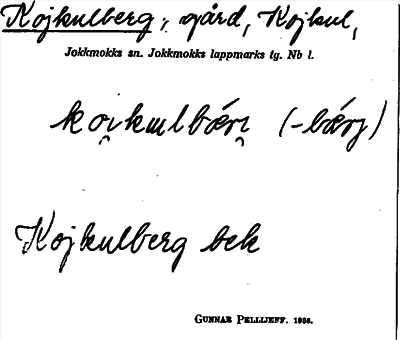 Kojkulberg, gård, Kojkul,
Jokkmokks sn. Jokkmokks lappmarks tg. Nb l.
koi̯kɯlbǽri̯ (-bǽrj)
Kojkulberg bek
GUNNAR PELLIJEFF. 1986.